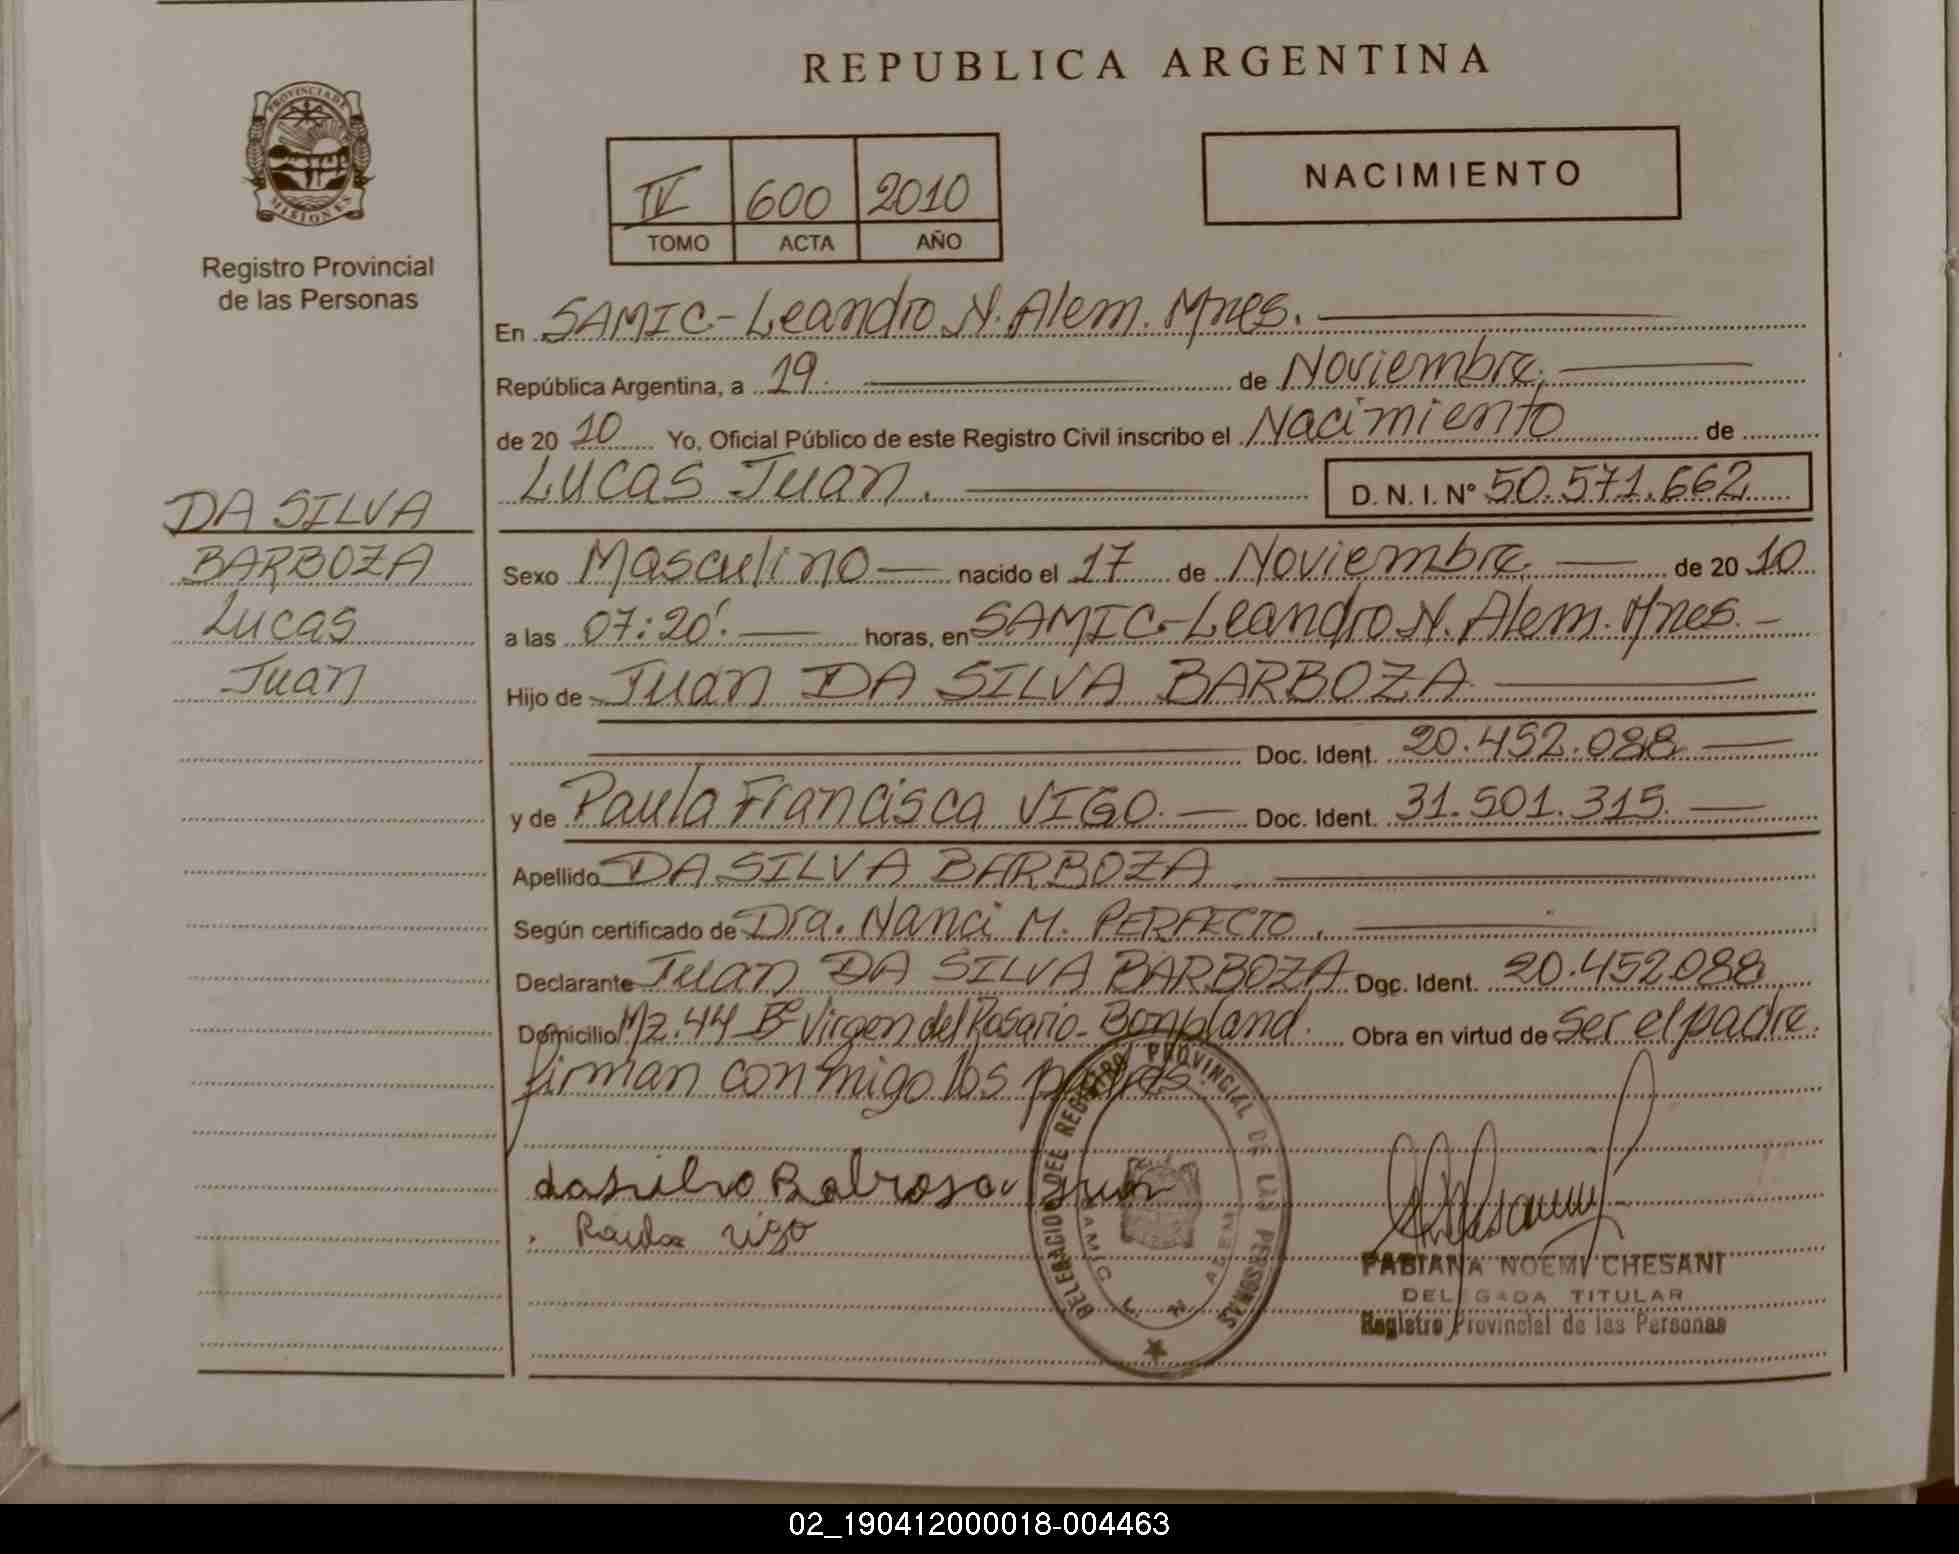 REPUBLICA ARGENTINA
PROVINCIA DE
MISIONES
Registro Provincial
de las Personas
IV 600 2010
TOMO ACTA AÑO
NACIMIENTO
En SAMIC-Leandro N. Alem. Mnes.
República Argentina, a 19. de Noviembre,
de 20 10 Yo, Oficial Público de este Registro Civil inscribo el Nacimiento de
Lucas Juan. D. N. I. Nº 50.571.662
DA SILVA
BARBOZA
Lucas
Juan
Sexo Masculino nacido el 17 de Noviembre. de 20 10
a las 07:20'. horas, en SAMIC-Leandro N. Alem. Mnes.
Hijo de Juan DA SILVA BARBOZA
Doc. Ident. 20.452.088
y de Paula Francisca VIGO. Doc. Ident. 31.501.315.
Apellido DA SILVA BARBOZA.
Según certificado de Dra. Nanci M. PERFECTO.
Declarante Juan DA SILVA BARBOZA Doc. Ident. 20.452.088
Domicilio Mz. 44 Bº Virgen del Rosario-Bonpland. Obra en virtud de ser el padre.
firman conmigo los padres.
DELEGACION DEL REGISTRO PROVINCIAL DE LAS PERSONAS
SAMIC L. N. ALEM
Paula vigo
FABIANA NOEMI CHESANI
DELEGADA TITULAR
Registro Provincial de las Personas
02_190412000018-004463